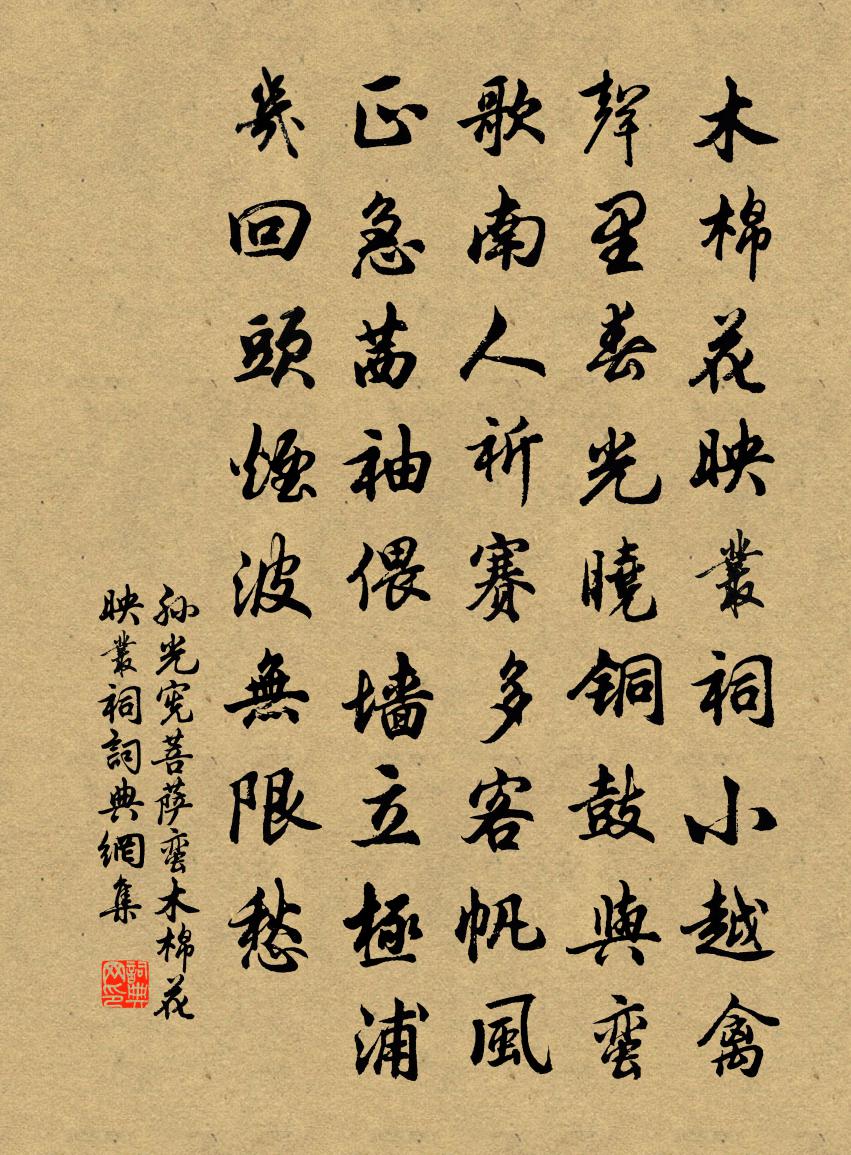 木棉花映叢祠小越禽
聲里春光曉铜鼓與蛮
歌南人祈賽多客帆風
正急茜袖偎墻立極浦
幾回頭煙波無限愁
孙光宪菩萨蛮木棉花
映叢祠詞典網集
詞典网印